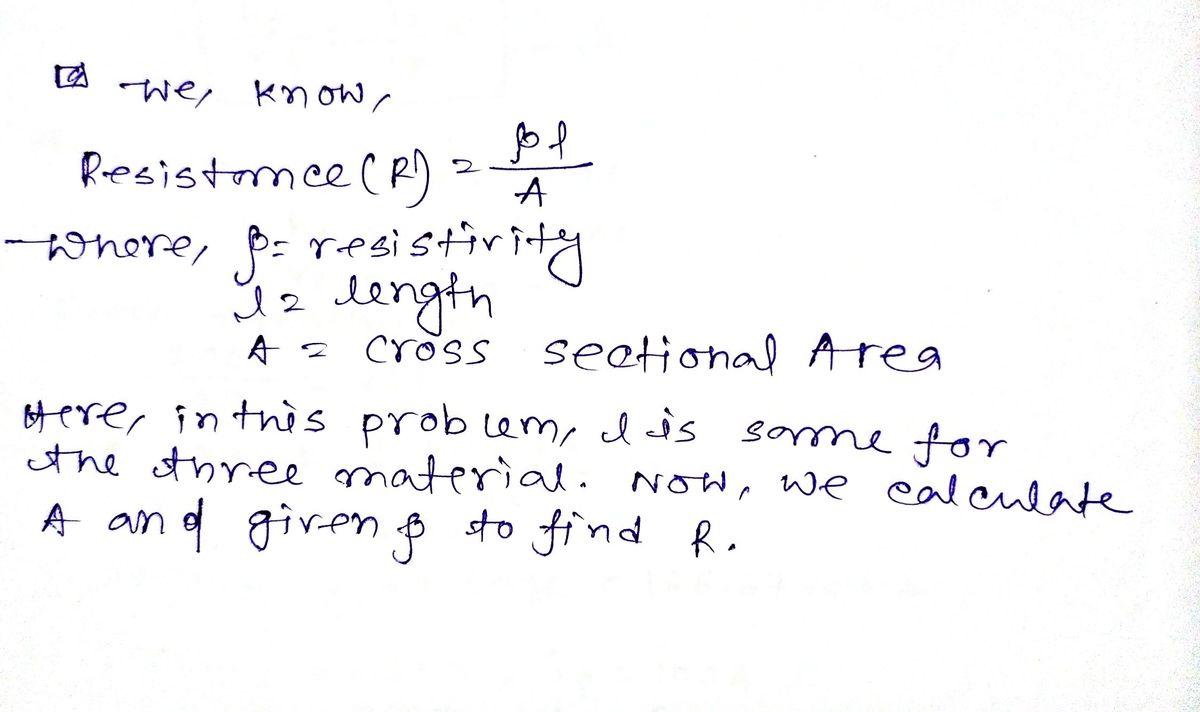 We, know,
Resistance (R) = ρl / A
where, ρ = resistivity
l = length
A = cross sectional Area
Here, in this problem, l is same for
the three material. Now, we calculate
A and given ρ to find R.